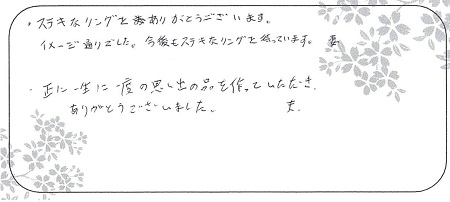 ・ステキなリングを ありがとうございます。
イメージ通りでした。今後もステキなリングを待っています。 妻
・正に一生に一度の思い出の品を作っていただき、
ありがとうございました。 夫